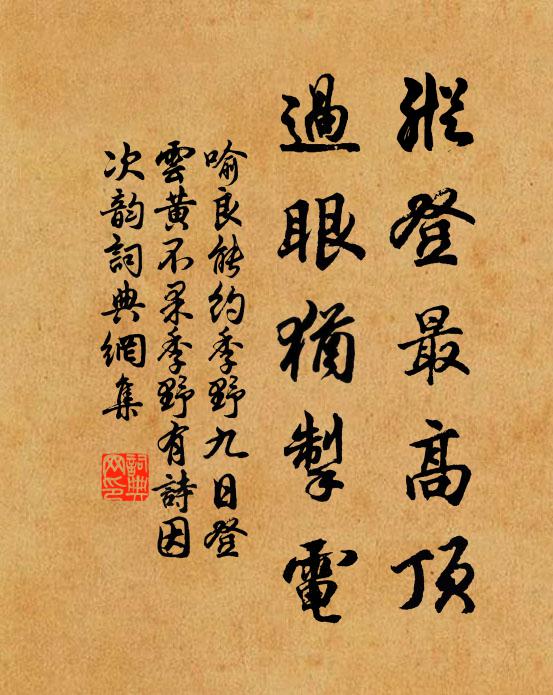 縱登最高頂
過眼猶掣電
喻良能約季野九日登
雲黄不果季野有詩因
次韵詞典網集
詞典網印